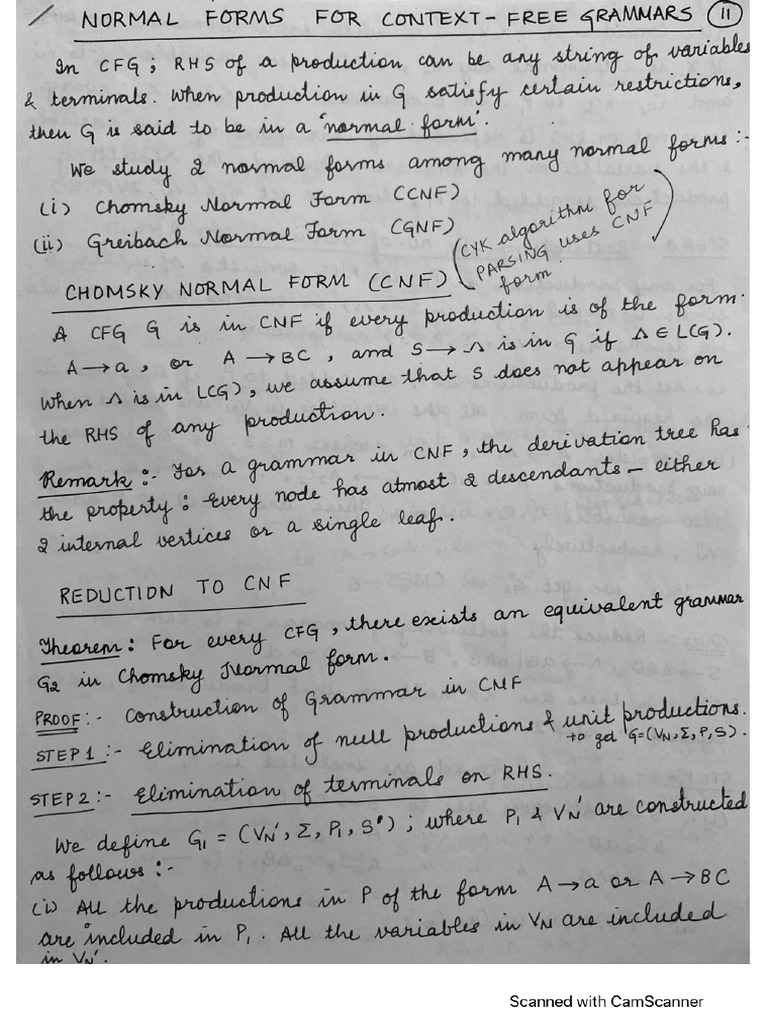 NORMAL FORMS FOR CONTEXT-FREE GRAMMARS 11
In CFG; RHS of a production can be any string of variables
& terminals. When production in G satisfy certain restrictions,
then G is said to be in a 'normal form'.
We study 2 normal forms among many normal forms :-
(i) Chomsky Normal Form (CNF)
(ii) Greibach Normal Form (GNF)
(CYK algorithm for
PARSING uses CNF
form.)
CHOMSKY NORMAL FORM (CNF)
A CFG G is in CNF if every production is of the form
A → a, or A → BC, and S → Λ is in G if Λ ∈ L(G).
When Λ is in L(G), we assume that S does not appear on
the RHS of any production.
Remark :- For a grammar in CNF, the derivation tree has
the property : Every node has atmost 2 descendants - either
2 internal vertices or a single leaf.
REDUCTION TO CNF
Theorem : For every CFG, there exists an equivalent grammar
G2 in Chomsky Normal form.
PROOF :- Construction of Grammar in CNF
STEP 1 :- Elimination of null productions & unit productions.
to get G=(VN, Σ, P, S).
STEP 2 :- Elimination of terminals on RHS.
We define G1 = (VN', Σ, P1, S'); where P1 & VN' are constructed
as follows :-
(i) All the productions in P of the form A → a or A → BC
are included in P1. All the variables in VN are included
in VN'.
Scanned with CamScanner